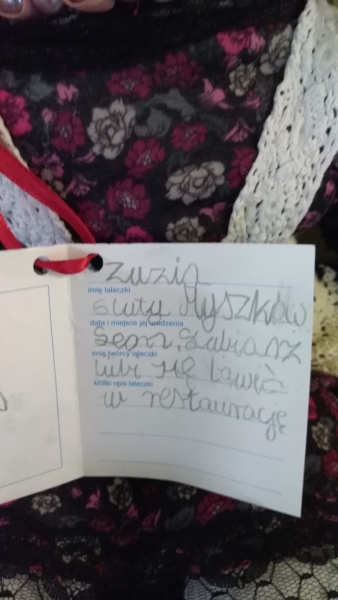 Zuzia
imię laleczki
6 luty Myszków
data i miejsce jej urodzenia
imię twórcy laleczki
lubi się bawić
krótki opis laleczki
w restauracje